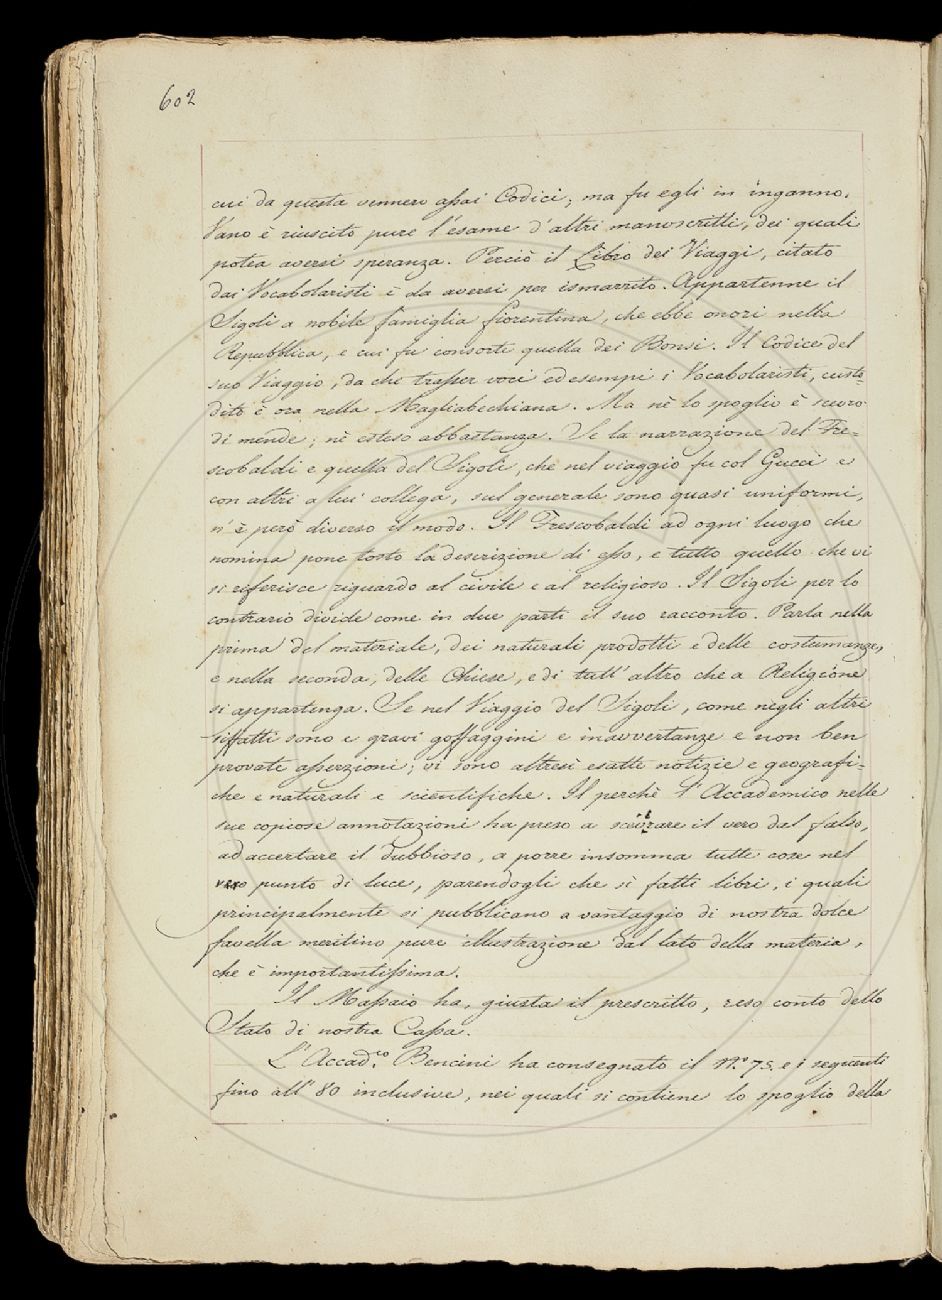 602
cui da questa vennero assai Codici; ma fu egli in inganno.
Vano è riuscito pure l'esame d'altri manoscritti, dei quali
potea aversi speranza. Perciò il Libro dei Viaggi, citato
dai Vocabolaristi è da aversi per ismarrito. Appartenne il
Sigoli a nobile famiglia fiorentina, che ebbe onori nella
Repubblica, e cui fu consorte quella dei Bonsi. Il Codice del
suo Viaggio, da che trasser voci ed esempi i Vocabolaristi, custo=
dito è ora nella Magliabechiana. Ma nè lo spoglio è scevro
di mende; nè esteso abbastanza. Se la narrazione del Fre=
scobaldi e quella del Sigoli, che nel viaggio fu col Gucci e
con altri a lui collega, sul generale sono quasi uniformi,
n'è però diverso il modo. Il Frescobaldi ad ogni luogo che
nomina pone tosto la descrizione di esso, e tutto quello che vi
si riferisce riguardo al civile e al religioso. Il Sigoli per lo
contrario divide come in due parti il suo racconto. Parla nella
prima del materiale, dei naturali prodotti e delle costumanze,
e nella seconda, delle Chiese, e di tutt'altro che a Religione
si appartenga. Se nel Viaggio del Sigoli, come negli altri
siffatti sono e gravi goffaggini e inavvertanze e non ben
provate asserzioni; vi sono altresì esatte notizie e geografi-
che e naturali e scientifiche. Il perchè l'Accademico nelle
sue copiose annotazioni ha preso a scevrare il vero dal falso,
ad accertare il dubbioso, a porre insomma tutte cose nel
vero punto di luce, parendogli che sì fatti libri, i quali
principalmente si pubblicano a vantaggio di nostra dolce
favella meritino pure illustrazione dal lato della materia,
che è importantissima.
Il Massaio ha, giusta il prescritto, reso conto dello
Stato di nostra Cassa.
L'Accad.co Bencini ha consegnato il N.o 75. e i seguenti
fino all'80 inclusive, nei quali si contiene lo spoglio della